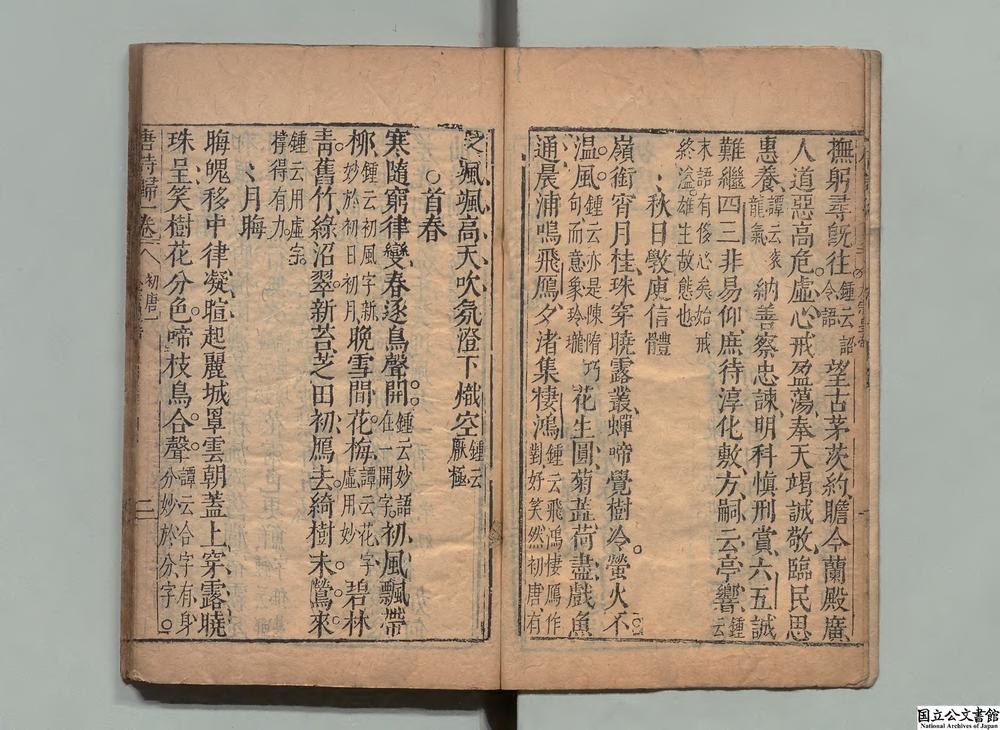 撫躬尋旣往鍾云詔令語望古茅茨約瞻今蘭殿廣
人道惡高危虛心戒盈蕩奉天竭誠敬臨民思
惠養譚云袞龍氣納善察忠諫明科愼刑賞六五誠
難繼四三非易仰庶待淳化敷方嗣云亭響鍾云
末語有俊心矣始戒終溢雄生故態也
秋日斅庾信體
嶺銜宵月桂珠穿曉露叢蟬啼覺樹冷螢火不
温風鍾云亦是陳隋巧句而意象玲瓏花生圓菊蕋荷盡戲魚
通晨浦鳴飛鴈夕渚集棲鴻鍾云飛鴻棲鴈作對好笑然初唐有
之颯颯高天吹氛澄下熾空鍾云厭極
○首春
寒隨窮律變春逐鳥聲開鍾云妙語在一開字初風飄帶
柳鍾云初風字新妙於初日初月晚雪間花梅譚云花字虛用妙碧林
靑舊竹綠沼翠新苔芝田初鴈去綺樹未鶯來
鍾云用虛字撐得有力
月晦
晦魄移中律凝暄起麗城罩雲朝蓋上穿露曉
珠呈笑樹花分色啼枝鳥合聲譚云合字有身分妙於分字
唐詩歸 初唐一 三
国立公文書館
National Archives of Japan